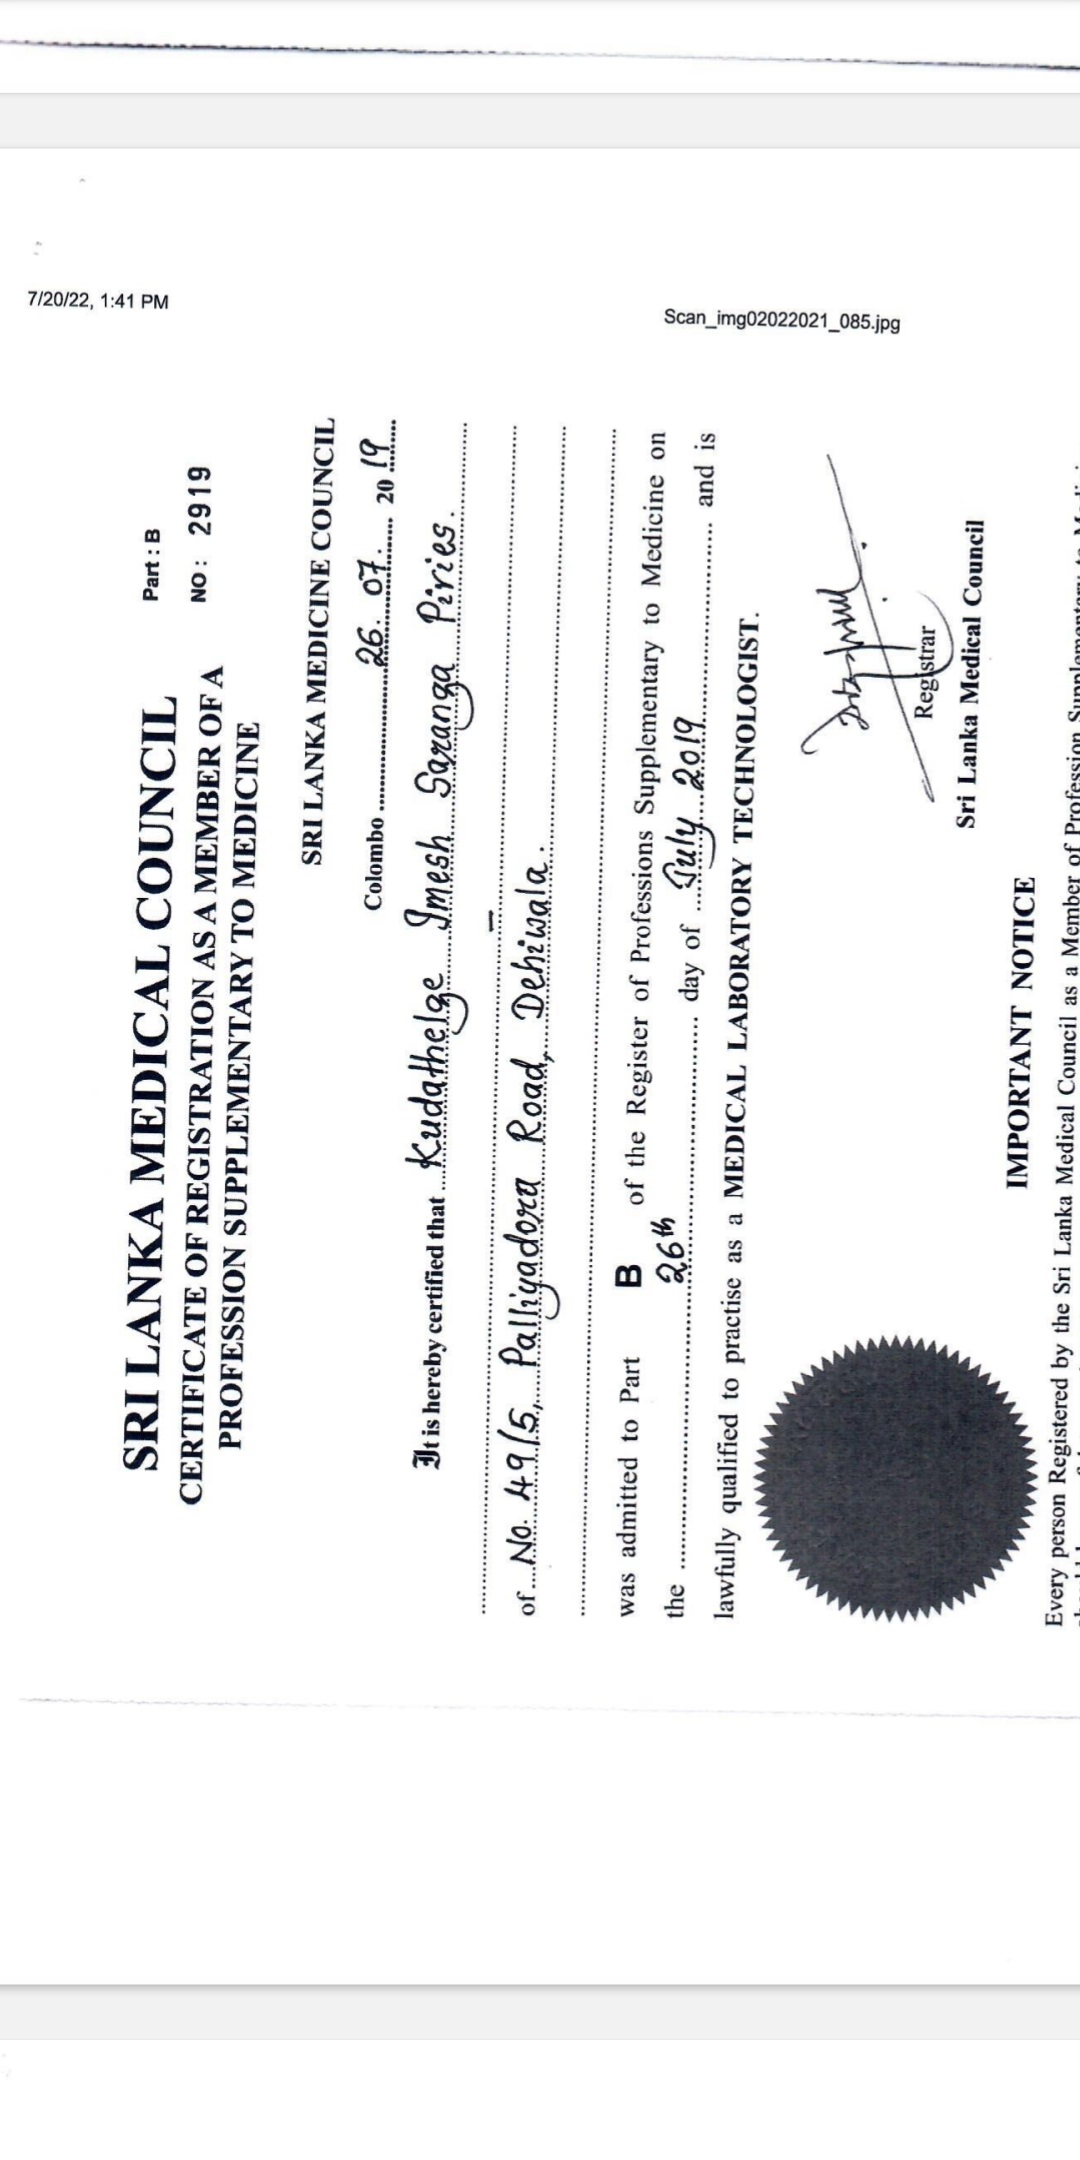 7/20/22, 1:41 PM
Scan_img02022021_085.jpg
SRI LANKA MEDICAL COUNCIL
Part : B
CERTIFICATE OF REGISTRATION AS A MEMBER OF A
NO : 2919
PROFESSION SUPPLEMENTARY TO MEDICINE
SRI LANKA MEDICINE COUNCIL
Colombo ............ 26. 07. ...... 20 19 ......
It is hereby certified that ... Kudathelge Imesh Saranga Piries.
–
of ... No. 49/5, Palliyadora Road, Dehiwala.
was admitted to Part B of the Register of Professions Supplementary to Medicine on
the ............ 26th ............ day of ... July 2019 ............ and is
lawfully qualified to practise as a MEDICAL LABORATORY TECHNOLOGIST.
Registrar
Sri Lanka Medical Council
IMPORTANT NOTICE
Every person Registered by the Sri Lanka Medical Council as a Member of Profession Supplementary to